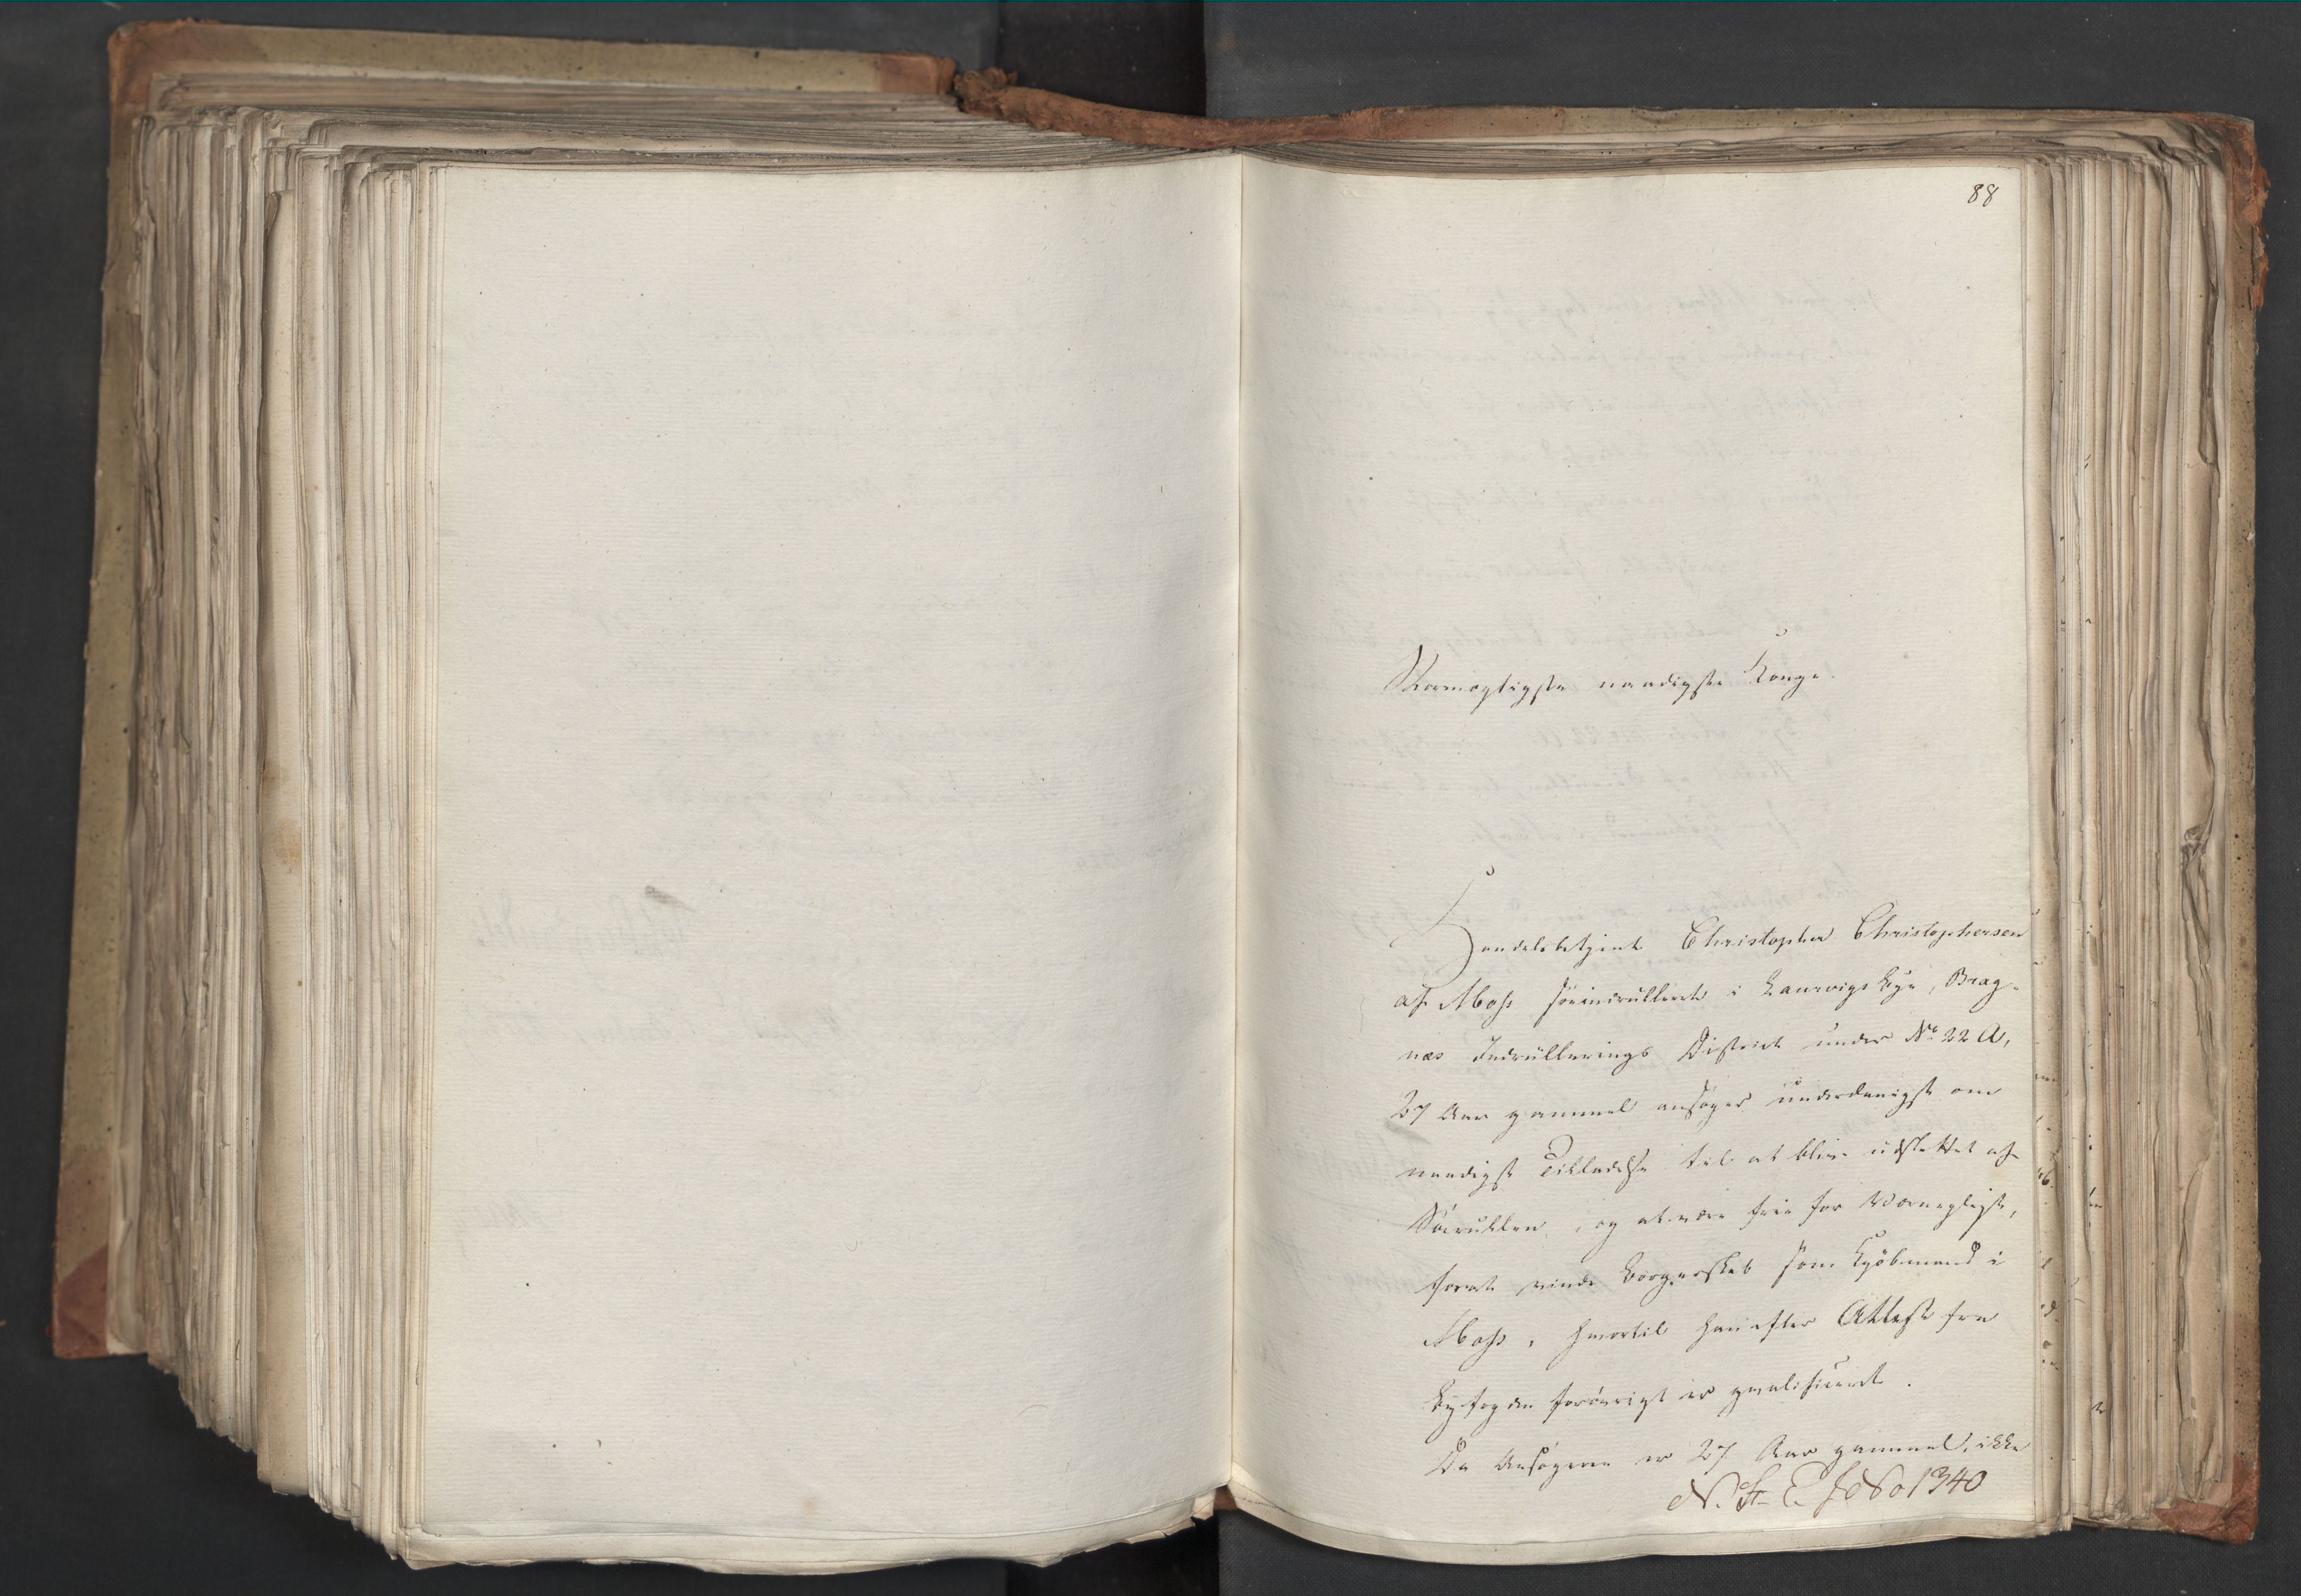 88
Stormægtigste naadigste Konge.
Handelsbetjent Christopher Christophersen
af Moss søeindrulleret i Laurvigs Bye, Brag-
næs Indrullerings District under No 22 A,
27 Aar gammel ansøger underdanigst om
naadigst Tilladelse til at blive udslettet af
Søerullen, og at være frie for Værnepligt,
forat vinde Borgerskab som Kjøbmand i
Moss, hvortil han efter Attest fra
Byfogden forøvrigt er qvalificeret.
Da Ansøgeren er 27 Aar gammel, ikke
No 1340